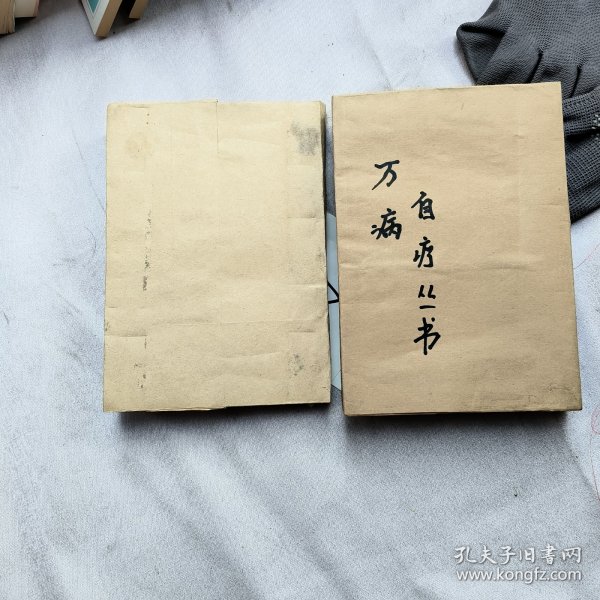 万病
自疗丛书
孔夫子旧书网
www.kongfz.com